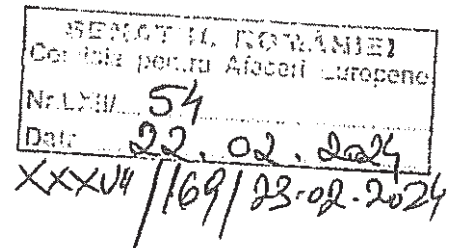 SENATUL ROMÂNIEI
Comisia pentru Afaceri Europene
Nr.LXII/ 54
Data 22.02.2024
/169/23.02.2024